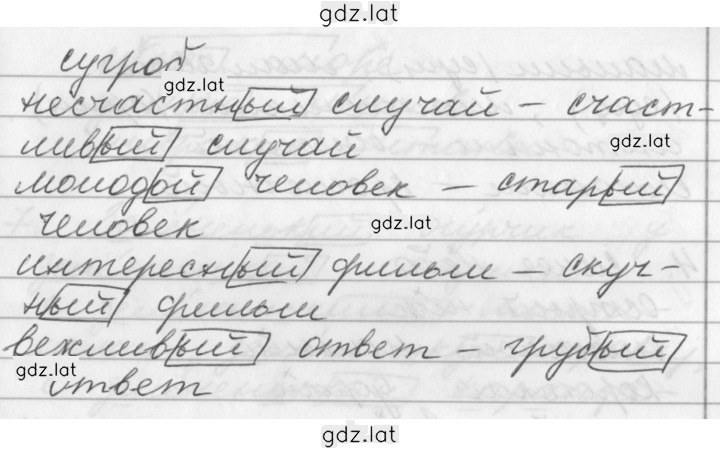 gdz.lat
сугроб
gdz.lat
несчастный случай – счаст-
gdz.lat
ливый случай
молодой человек – старый
gdz.lat
человек
интересный фильм – скуч-
ный фильм
вежливый ответ – грубый
gdz.lat
ответ
gdz.lat